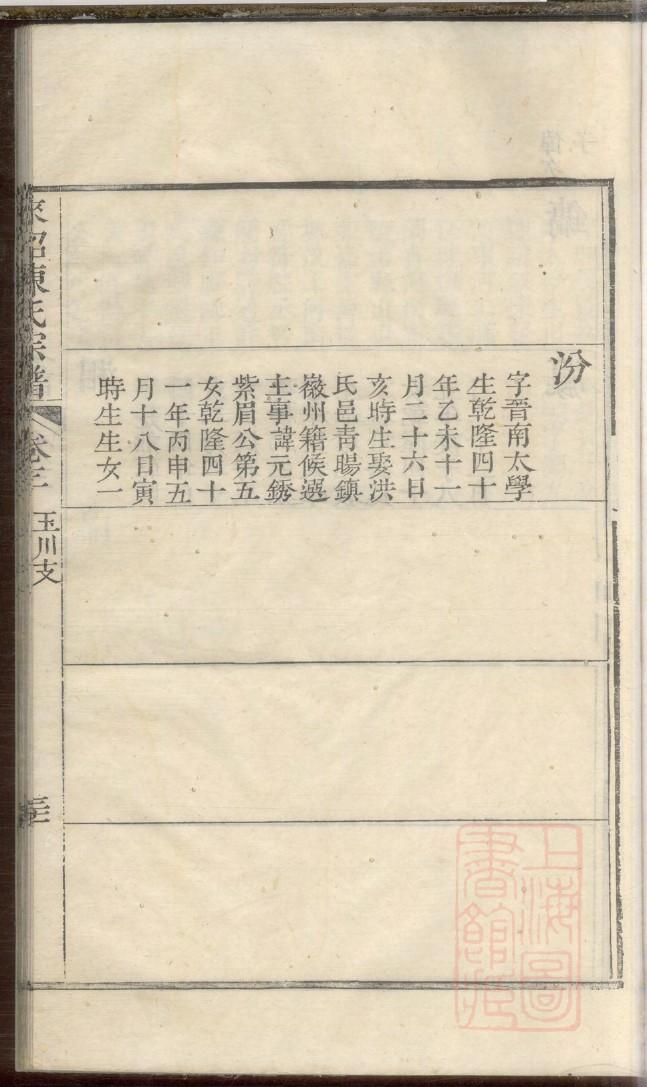 汾
字晉南太學
生乾隆四十
年乙未十一
月二十六日
亥時生娶洪
氏邑青暘鎮
徽州籍候選
主事諱元銹
紫眉公第五
女乾隆四十
一年丙申五
月十八日寅
時生生女一
陳氏宗譜
卷三
玉川支
上海圖
書館藏